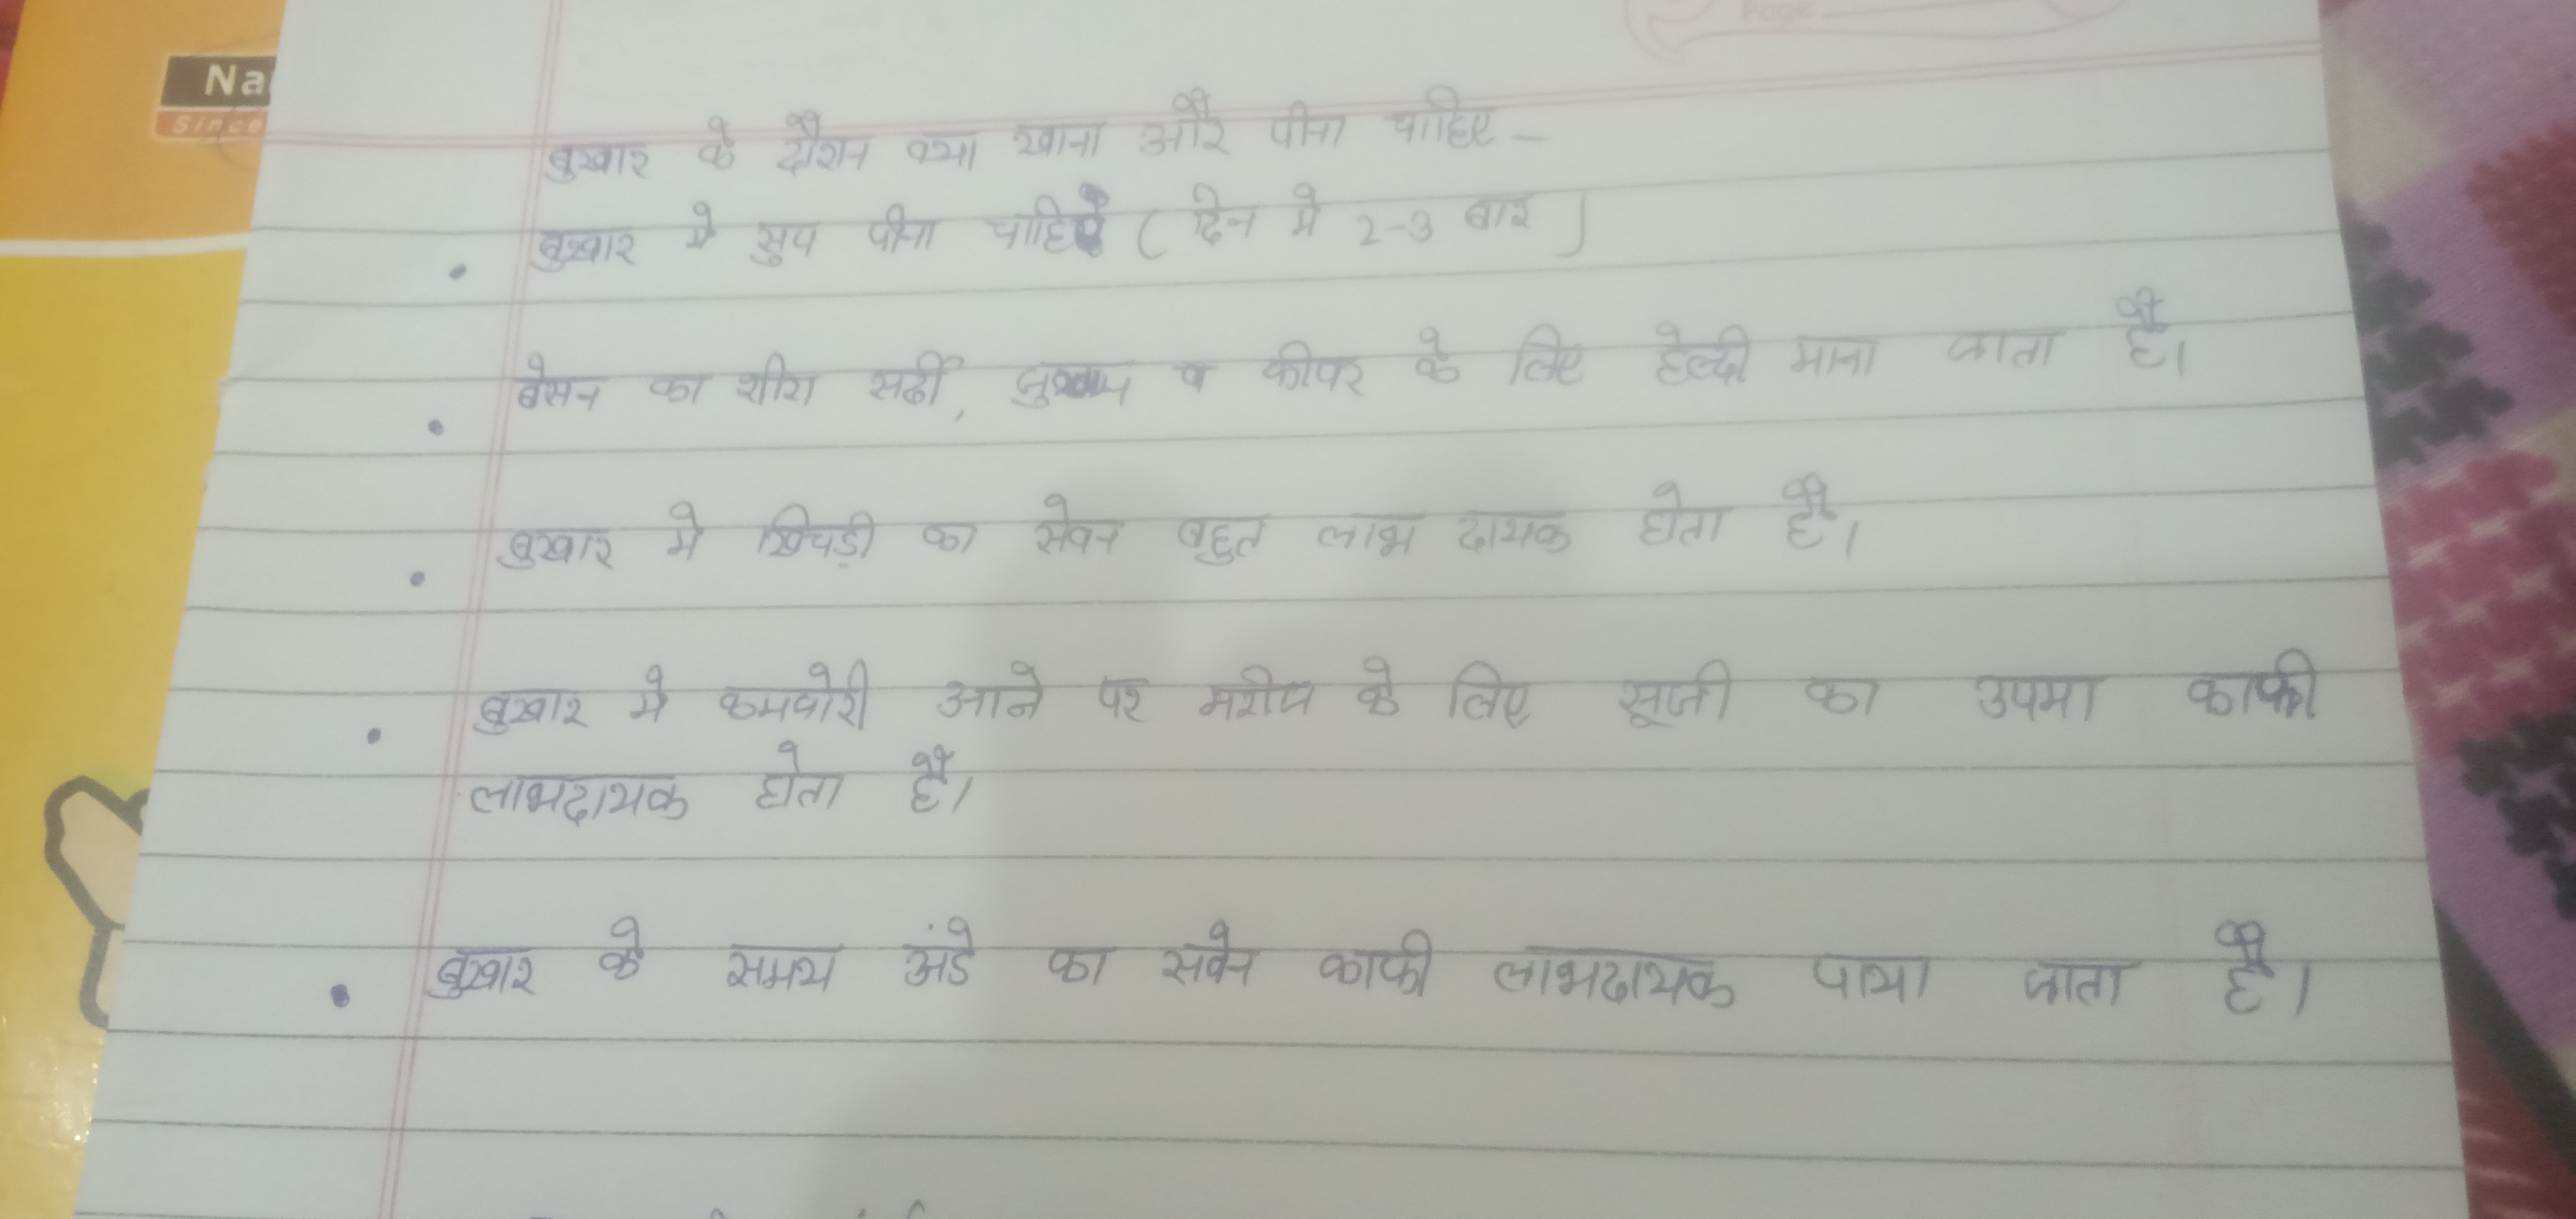 Page
Na
Since
बुखार के दौरान क्या खाना और पीना चाहिए –
• बुखार मे सुप पीना चाहिए ( दिन मे 2-3 बार )
• बेसन का शीरा सर्दी, जुखाम व फीवर के लिए हेल्दी माना जाता है।
• बुखार मे खिचड़ी का सेवन बहुत लाभ दायक होता है।
• बुखार मे कमजोरी आने पर मरीज के लिए सूजी का उपमा काफी
लाभदायक होता है।
• बुखार के समय अंडे का सेवन काफी लाभदायक पाया जाता है।